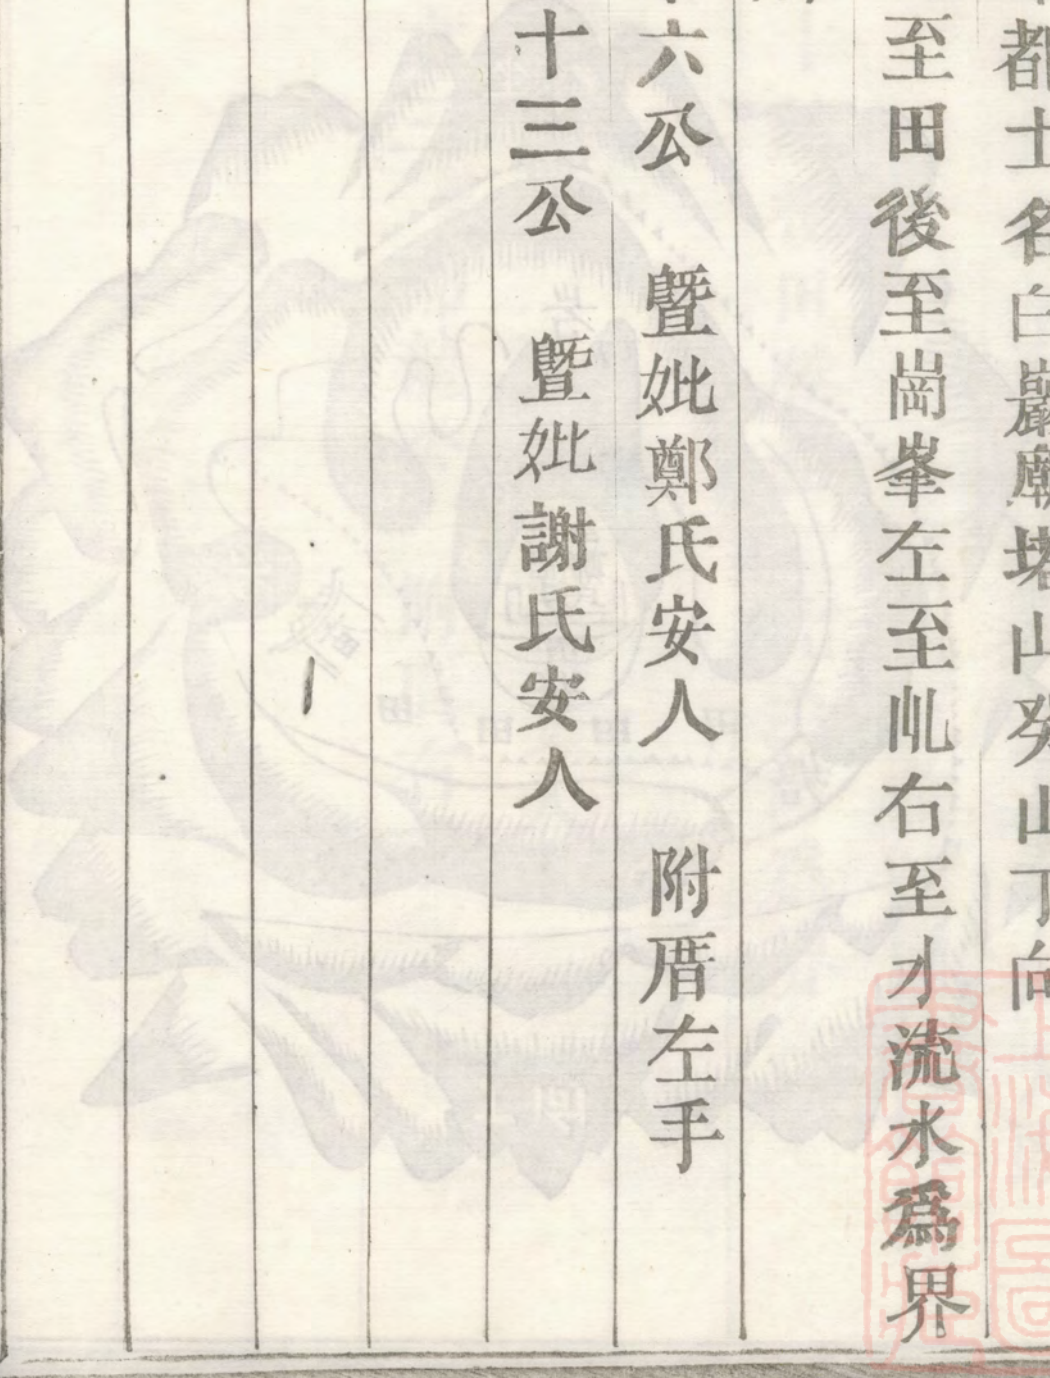 都土名白巖廟山癸山丁向
至田後至崗峯左至乢右至小流水爲界
六公 曁妣鄭氏安人 附厝左手
十三公 曁妣謝氏安人
上海圖書館藏